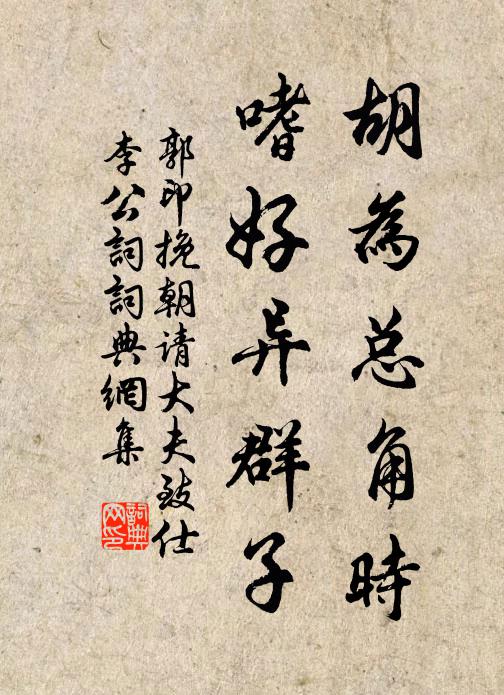 胡為总角時
嗜好异群子
郭印挽朝请大夫致仕
李公詞詞典網集
詞典網印